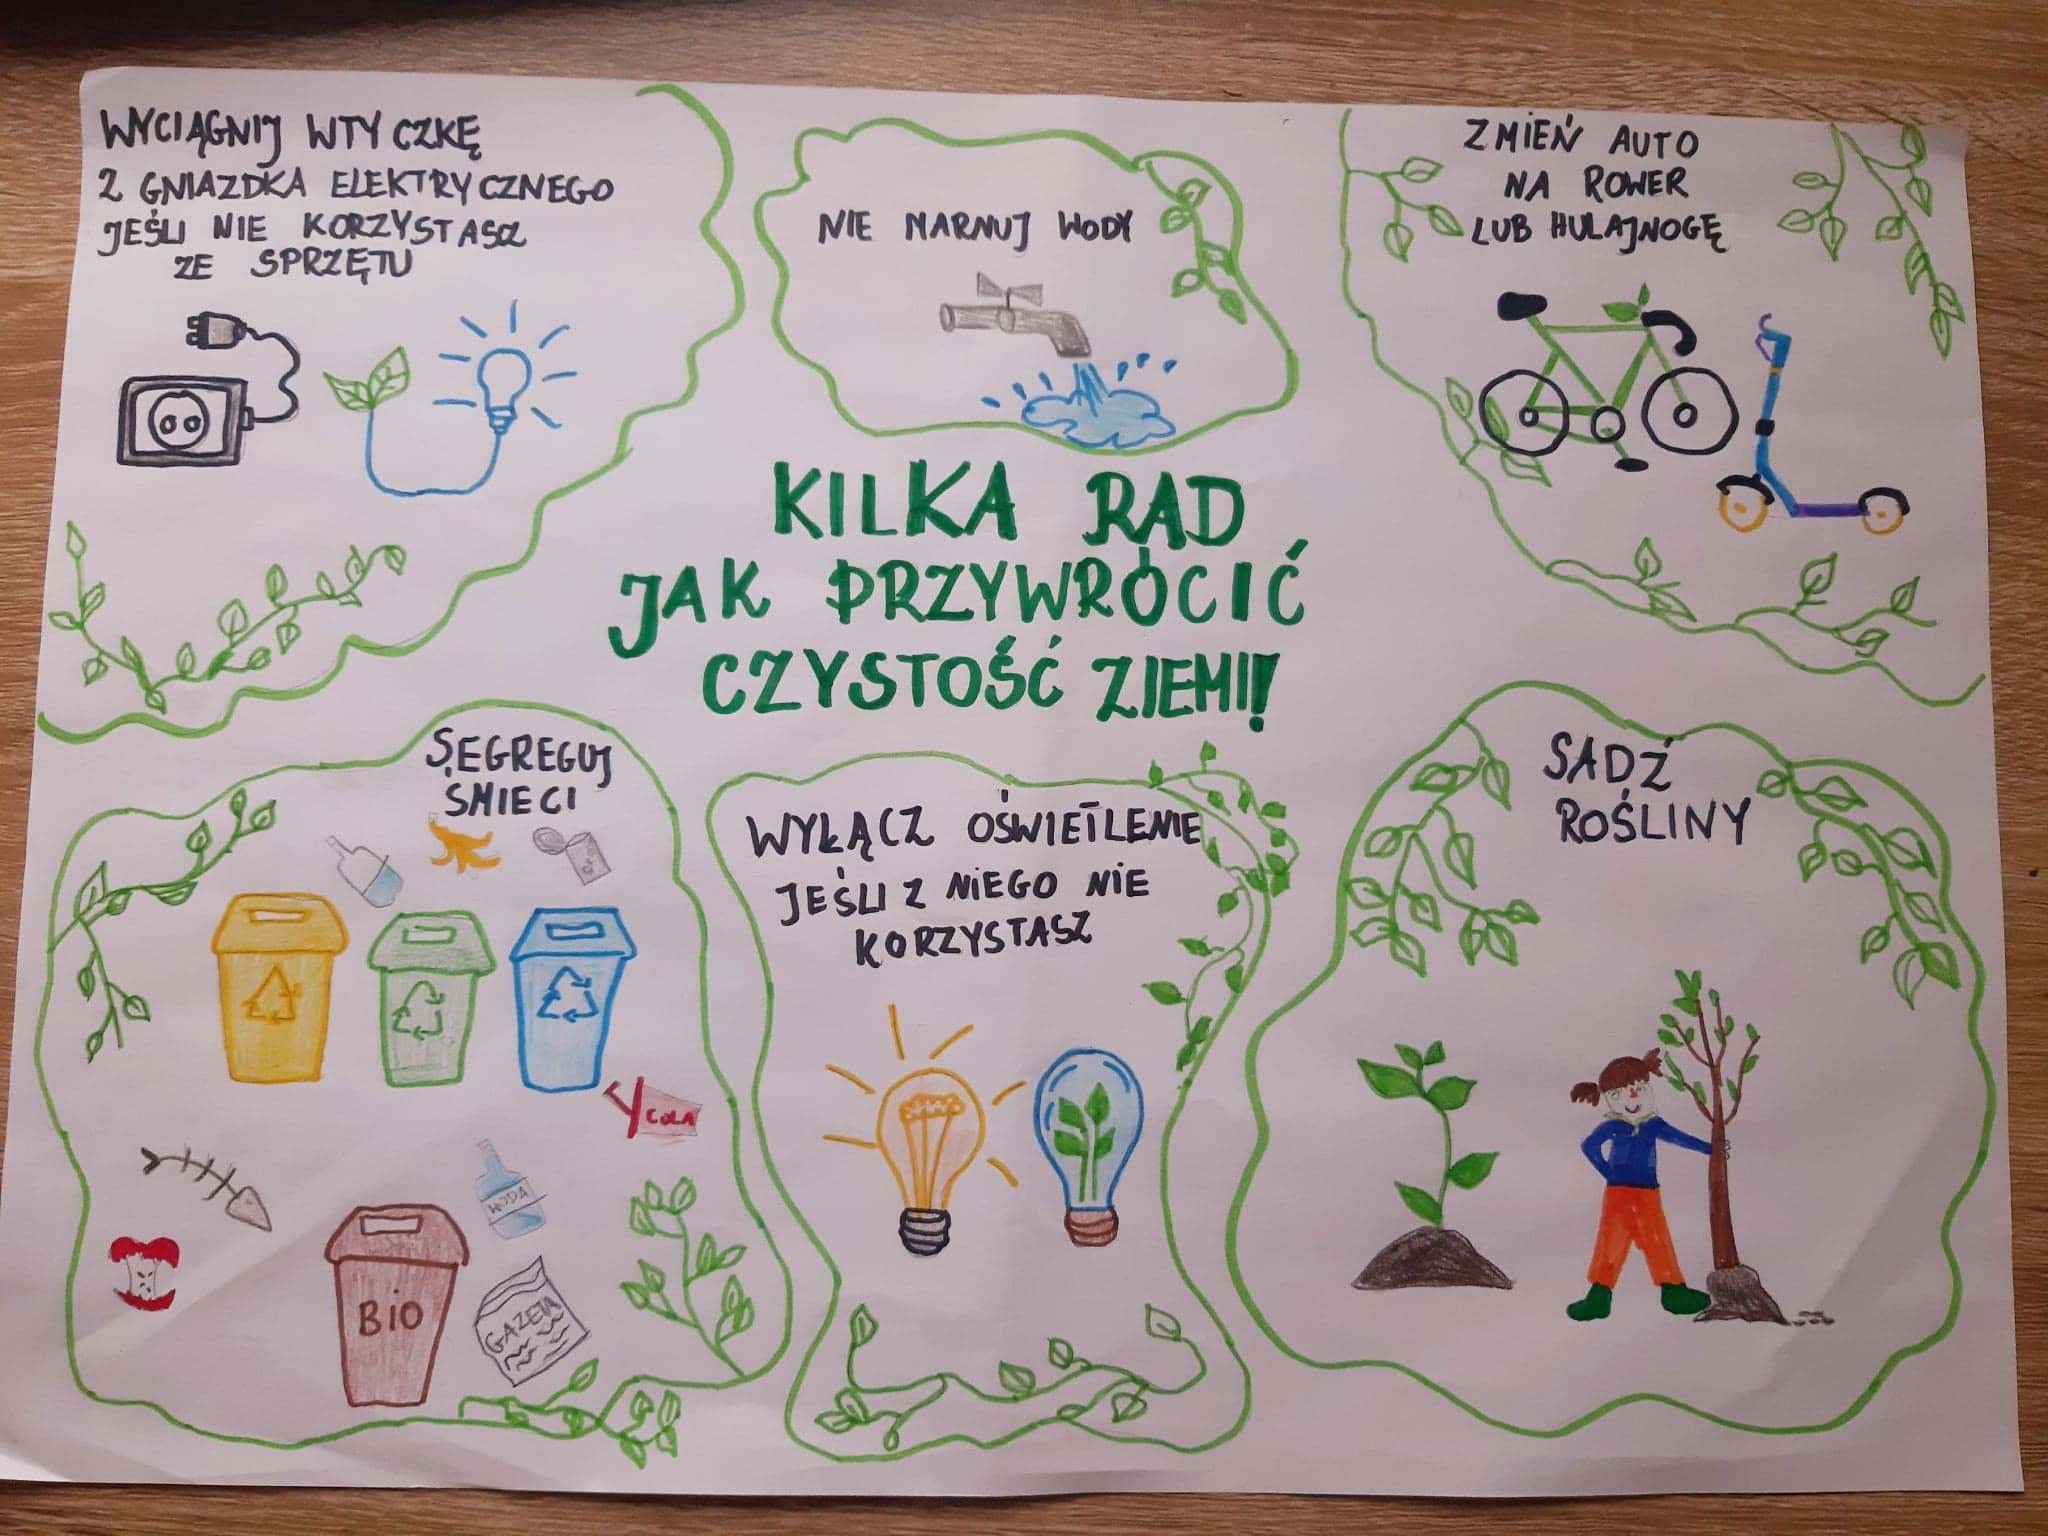 WYCIĄGNIJ WTYCZKĘ
Z GNIAZDKA ELEKTRYCZNEGO
JEŚLI NIE KORZYSTASZ
ZE SPRZĘTU
NIE MARNUJ WODY
ZMIEŃ AUTO
NA ROWER
LUB HULAJNOGĘ
KILKA RAD
JAK PRZYWRÓCIĆ
CZYSTOŚĆ ZIEMI!
SEGREGUJ
ŚMIECI
COLA
WODA
BIO
GAZETA
WYŁĄCZ OŚWIETLENIE
JEŚLI Z NIEGO NIE
KORZYSTASZ
SADŹ
ROŚLINY